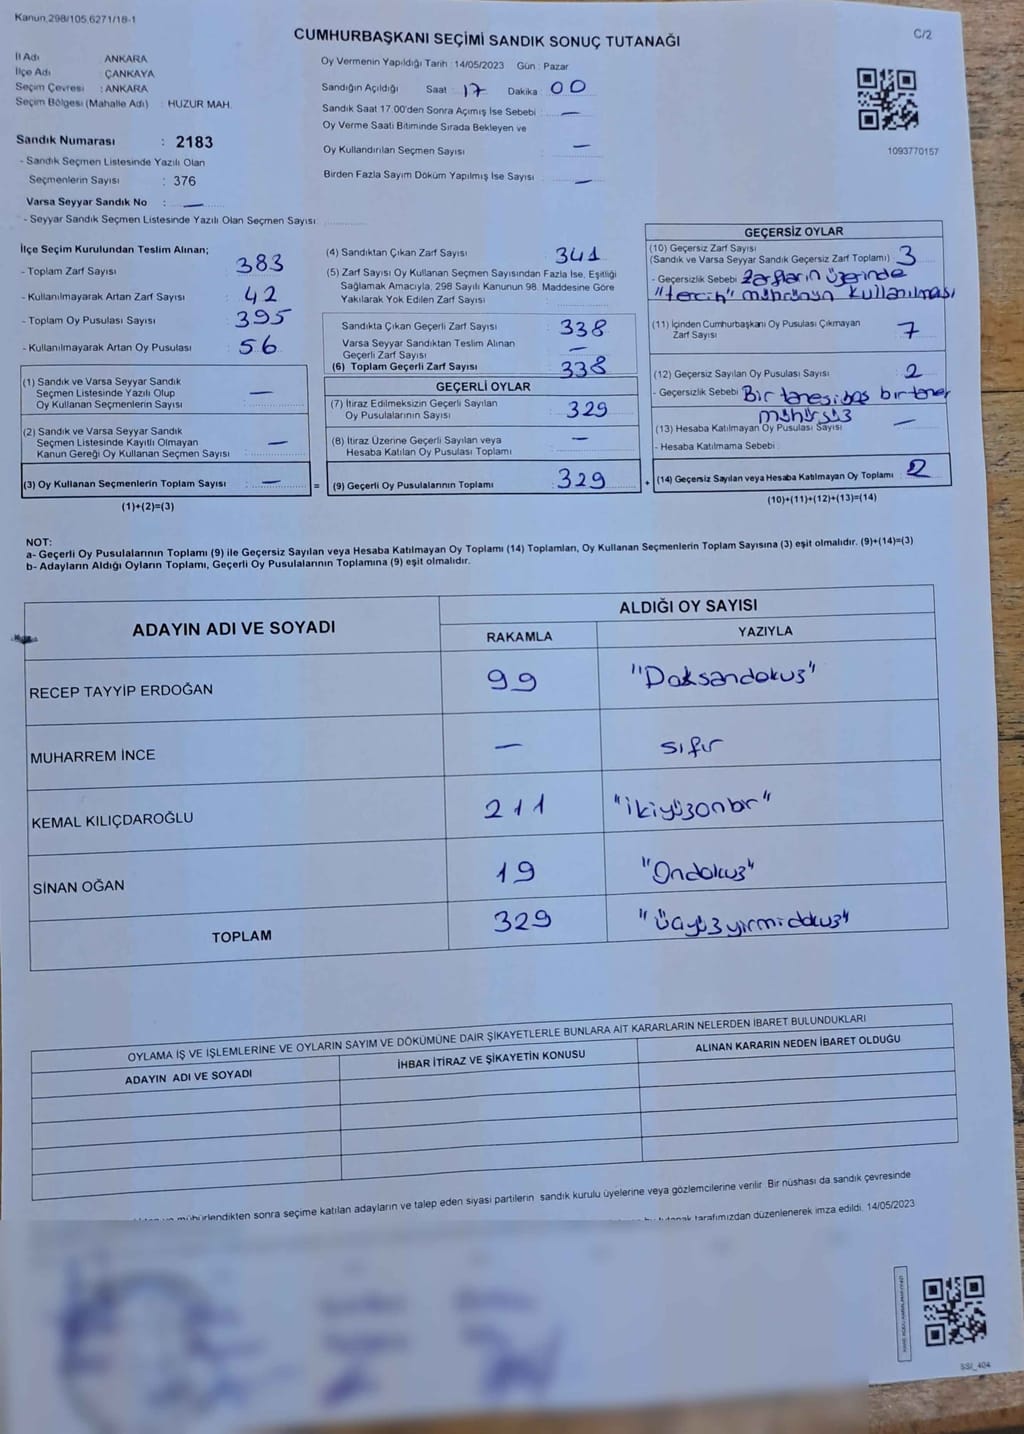 Kanun 298/105,6271/18-1
C/2
CUMHURBAŞKANI SEÇİMİ SANDIK SONUÇ TUTANAĞI
İl Adı : ANKARA
İlçe Adı : ÇANKAYA
Seçim Çevresi : ANKARA
Seçim Bölgesi (Mahalle Adı) : HUZUR MAH.
Oy Vermenin Yapıldığı Tarih : 14/05/2023 Gün : Pazar
Sandığın Açıldığı Saat : 17 Dakika : 00
Sandık Saat 17.00'den Sonra Açımış İse Sebebi : —
Oy Verme Saati Bitiminde Sırada Bekleyen ve
Oy Kullandırılan Seçmen Sayısı : —
Birden Fazla Sayım Döküm Yapılmış İse Sayısı : —
1093770157
Sandık Numarası : 2183
- Sandık Seçmen Listesinde Yazılı Olan
Seçmenlerin Sayısı : 376
Varsa Seyyar Sandık No : —
- Seyyar Sandık Seçmen Listesinde Yazılı Olan Seçmen Sayısı :
İlçe Seçim Kurulundan Teslim Alınan;
- Toplam Zarf Sayısı : 383
- Kullanılmayarak Artan Zarf Sayısı : 42
- Toplam Oy Pusulası Sayısı : 395
- Kullanılmayarak Artan Oy Pusulası : 56
(1) Sandık ve Varsa Seyyar Sandık
Seçmen Listesinde Yazılı Olup
Oy Kullanan Seçmenlerin Sayısı : —
(2) Sandık ve Varsa Seyyar Sandık
Seçmen Listesinde Kayıtlı Olmayan
Kanun Gereği Oy Kullanan Seçmen Sayısı : —
(3) Oy Kullanan Seçmenlerin Toplam Sayısı : — =
(1)+(2)=(3)
(4) Sandıktan Çıkan Zarf Sayısı : 341
(5) Zarf Sayısı Oy Kullanan Seçmen Sayısından Fazla İse, Eşitliği
Sağlamak Amacıyla, 298 Sayılı Kanunun 98. Maddesine Göre
Yakılarak Yok Edilen Zarf Sayısı :
Sandıkta Çıkan Geçerli Zarf Sayısı : 338
Varsa Seyyar Sandıktan Teslim Alınan
Geçerli Zarf Sayısı : —
(6) Toplam Geçerli Zarf Sayısı : 338
GEÇERLİ OYLAR
(7) İtiraz Edilmeksizin Geçerli Sayılan
Oy Pusulalarının Sayısı : 329
(8) İtiraz Üzerine Geçerli Sayılan veya
Hesaba Katılan Oy Pusulası Toplamı : —
(9) Geçerli Oy Pusulalarının Toplamı : 329 +
GEÇERSİZ OYLAR
(10) Geçersiz Zarf Sayısı
(Sandık ve Varsa Seyyar Sandık Geçersiz Zarf Toplamı) : 3
- Geçersizlik Sebebi : Zarfların üzerinde
"tercih" mührünün kullanılması
(11) İçinden Cumhurbaşkanı Oy Pusulası Çıkmayan
Zarf Sayısı : 7
(12) Geçersiz Sayılan Oy Pusulası Sayısı : 2
- Geçersizlik Sebebi : Bir tanesi boş bir tanesi
mühürsüz
(13) Hesaba Katılmayan Oy Pusulası Sayısı : —
- Hesaba Katılmama Sebebi :
(14) Geçersiz Sayılan veya Hesaba Katılmayan Oy Toplamı : 2
(10)+(11)+(12)+(13)=(14)
NOT:
a- Geçerli Oy Pusulalarının Toplamı (9) ile Geçersiz Sayılan veya Hesaba Katılmayan Oy Toplamı (14) Toplamları, Oy Kullanan Seçmenlerin Toplam Sayısına (3) eşit olmalıdır. (9)+(14)=(3)
b- Adayların Aldığı Oyların Toplamı, Geçerli Oy Pusulalarının Toplamına (9) eşit olmalıdır.
ADAYIN ADI VE SOYADI
ALDIĞI OY SAYISI
RAKAMLA YAZIYLA
RECEP TAYYİP ERDOĞAN 99 "Doksandokuz"
MUHARREM İNCE — sıfır
KEMAL KILIÇDAROĞLU 211 "ikiyüzonbir"
SİNAN OĞAN 19 "Ondokuz"
TOPLAM 329 "üçyüzyirmidokuz"
OYLAMA İŞ VE İŞLEMLERİNE VE OYLARIN SAYIM VE DÖKÜMÜNE DAİR ŞİKAYETLERLE BUNLARA AİT KARARLARIN NELERDEN İBARET BULUNDUKLARI
ADAYIN ADI VE SOYADI İHBAR İTİRAZ VE ŞİKAYETİN KONUSU ALINAN KARARIN NEDEN İBARET OLDUĞU
mühürlendikten sonra seçime katılan adayların ve talep eden siyasi partilerin sandık kurulu üyelerine veya gözlemcilerine verilir. Bir nüshası da sandık çevresinde
tutanak tarafımızdan düzenlenerek imza edildi. 14/05/2023
SSİ_404